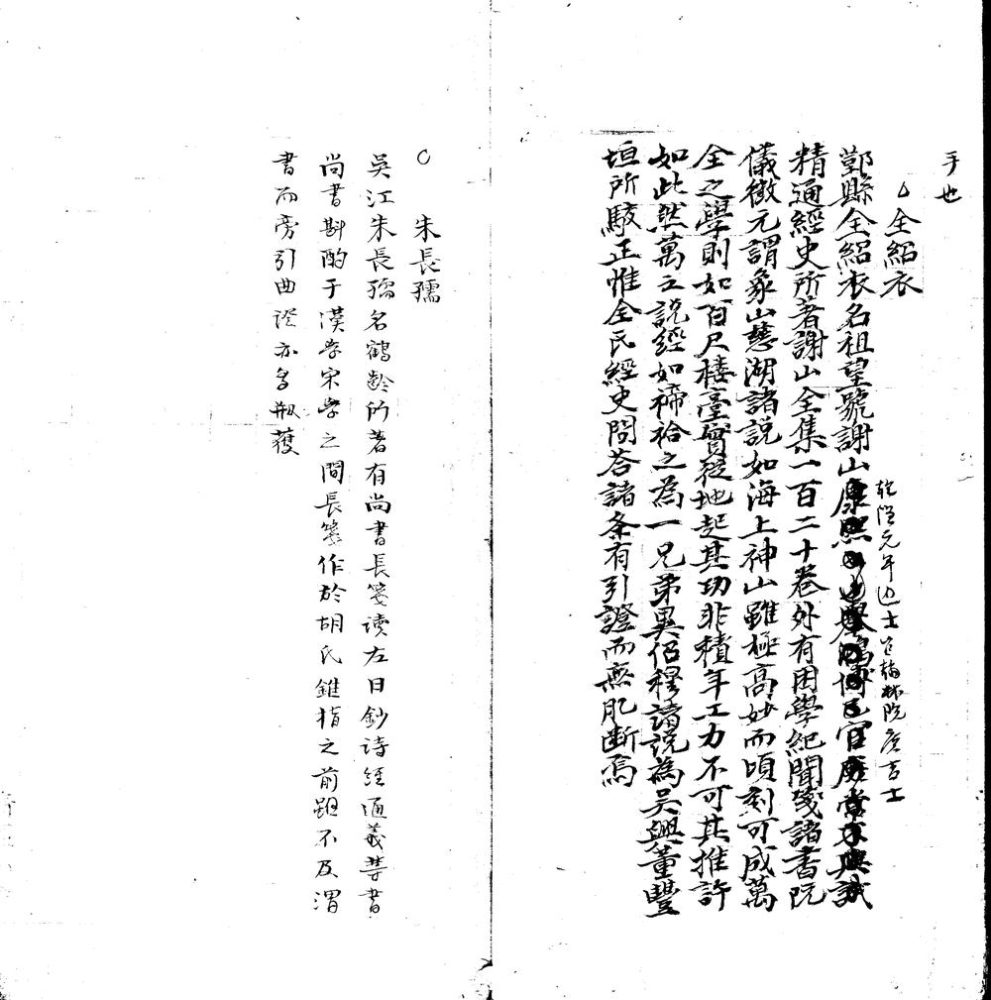 手也
△全紹衣
鄞縣全紹衣名祖望號謝山康熙舉鴻博官庶常不與試
乾隆元年進士官翰林院庶吉士
精通經史所著謝山全集一百二十卷外有困學紀聞箋諸書阮
儀徵元謂象山慈湖諸說如海上神山雖極高妙而頃刻可成萬
全之學則如百尺樓臺實從地起其功非積年工力不可其推許
如此然萬立說經如禘祫之為一兄弟異侶穆諸說為吳興董豐
垣所駁正惟全氏經史問荅諸条有引證而無肊断焉
○朱長孺
吳江朱長孺名鶴齡所著有尚書長箋读左日鈔诗经通義等書
尚書斟酌于漢学宋学之間長箋作於胡氏錐指之前雖不及渭
書而旁引曲證亦多剏獲